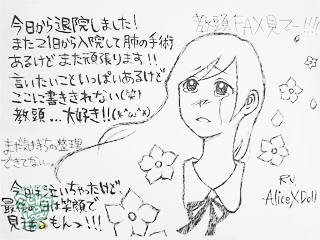 今日から退院しました!
また21日から入院して肺の手術
あるけどまた頑張ります!!
言いたいこといっぱいあるけど
ここに書ききれない(笑)
教頭...大好き!!
まだ気持ちの整理
できてない…。
今日は泣いちゃったけど、
最後の日は笑顔で
見送るもんっ!!!
教頭FAX見てー!!!!
R.N.
AliceXDoll